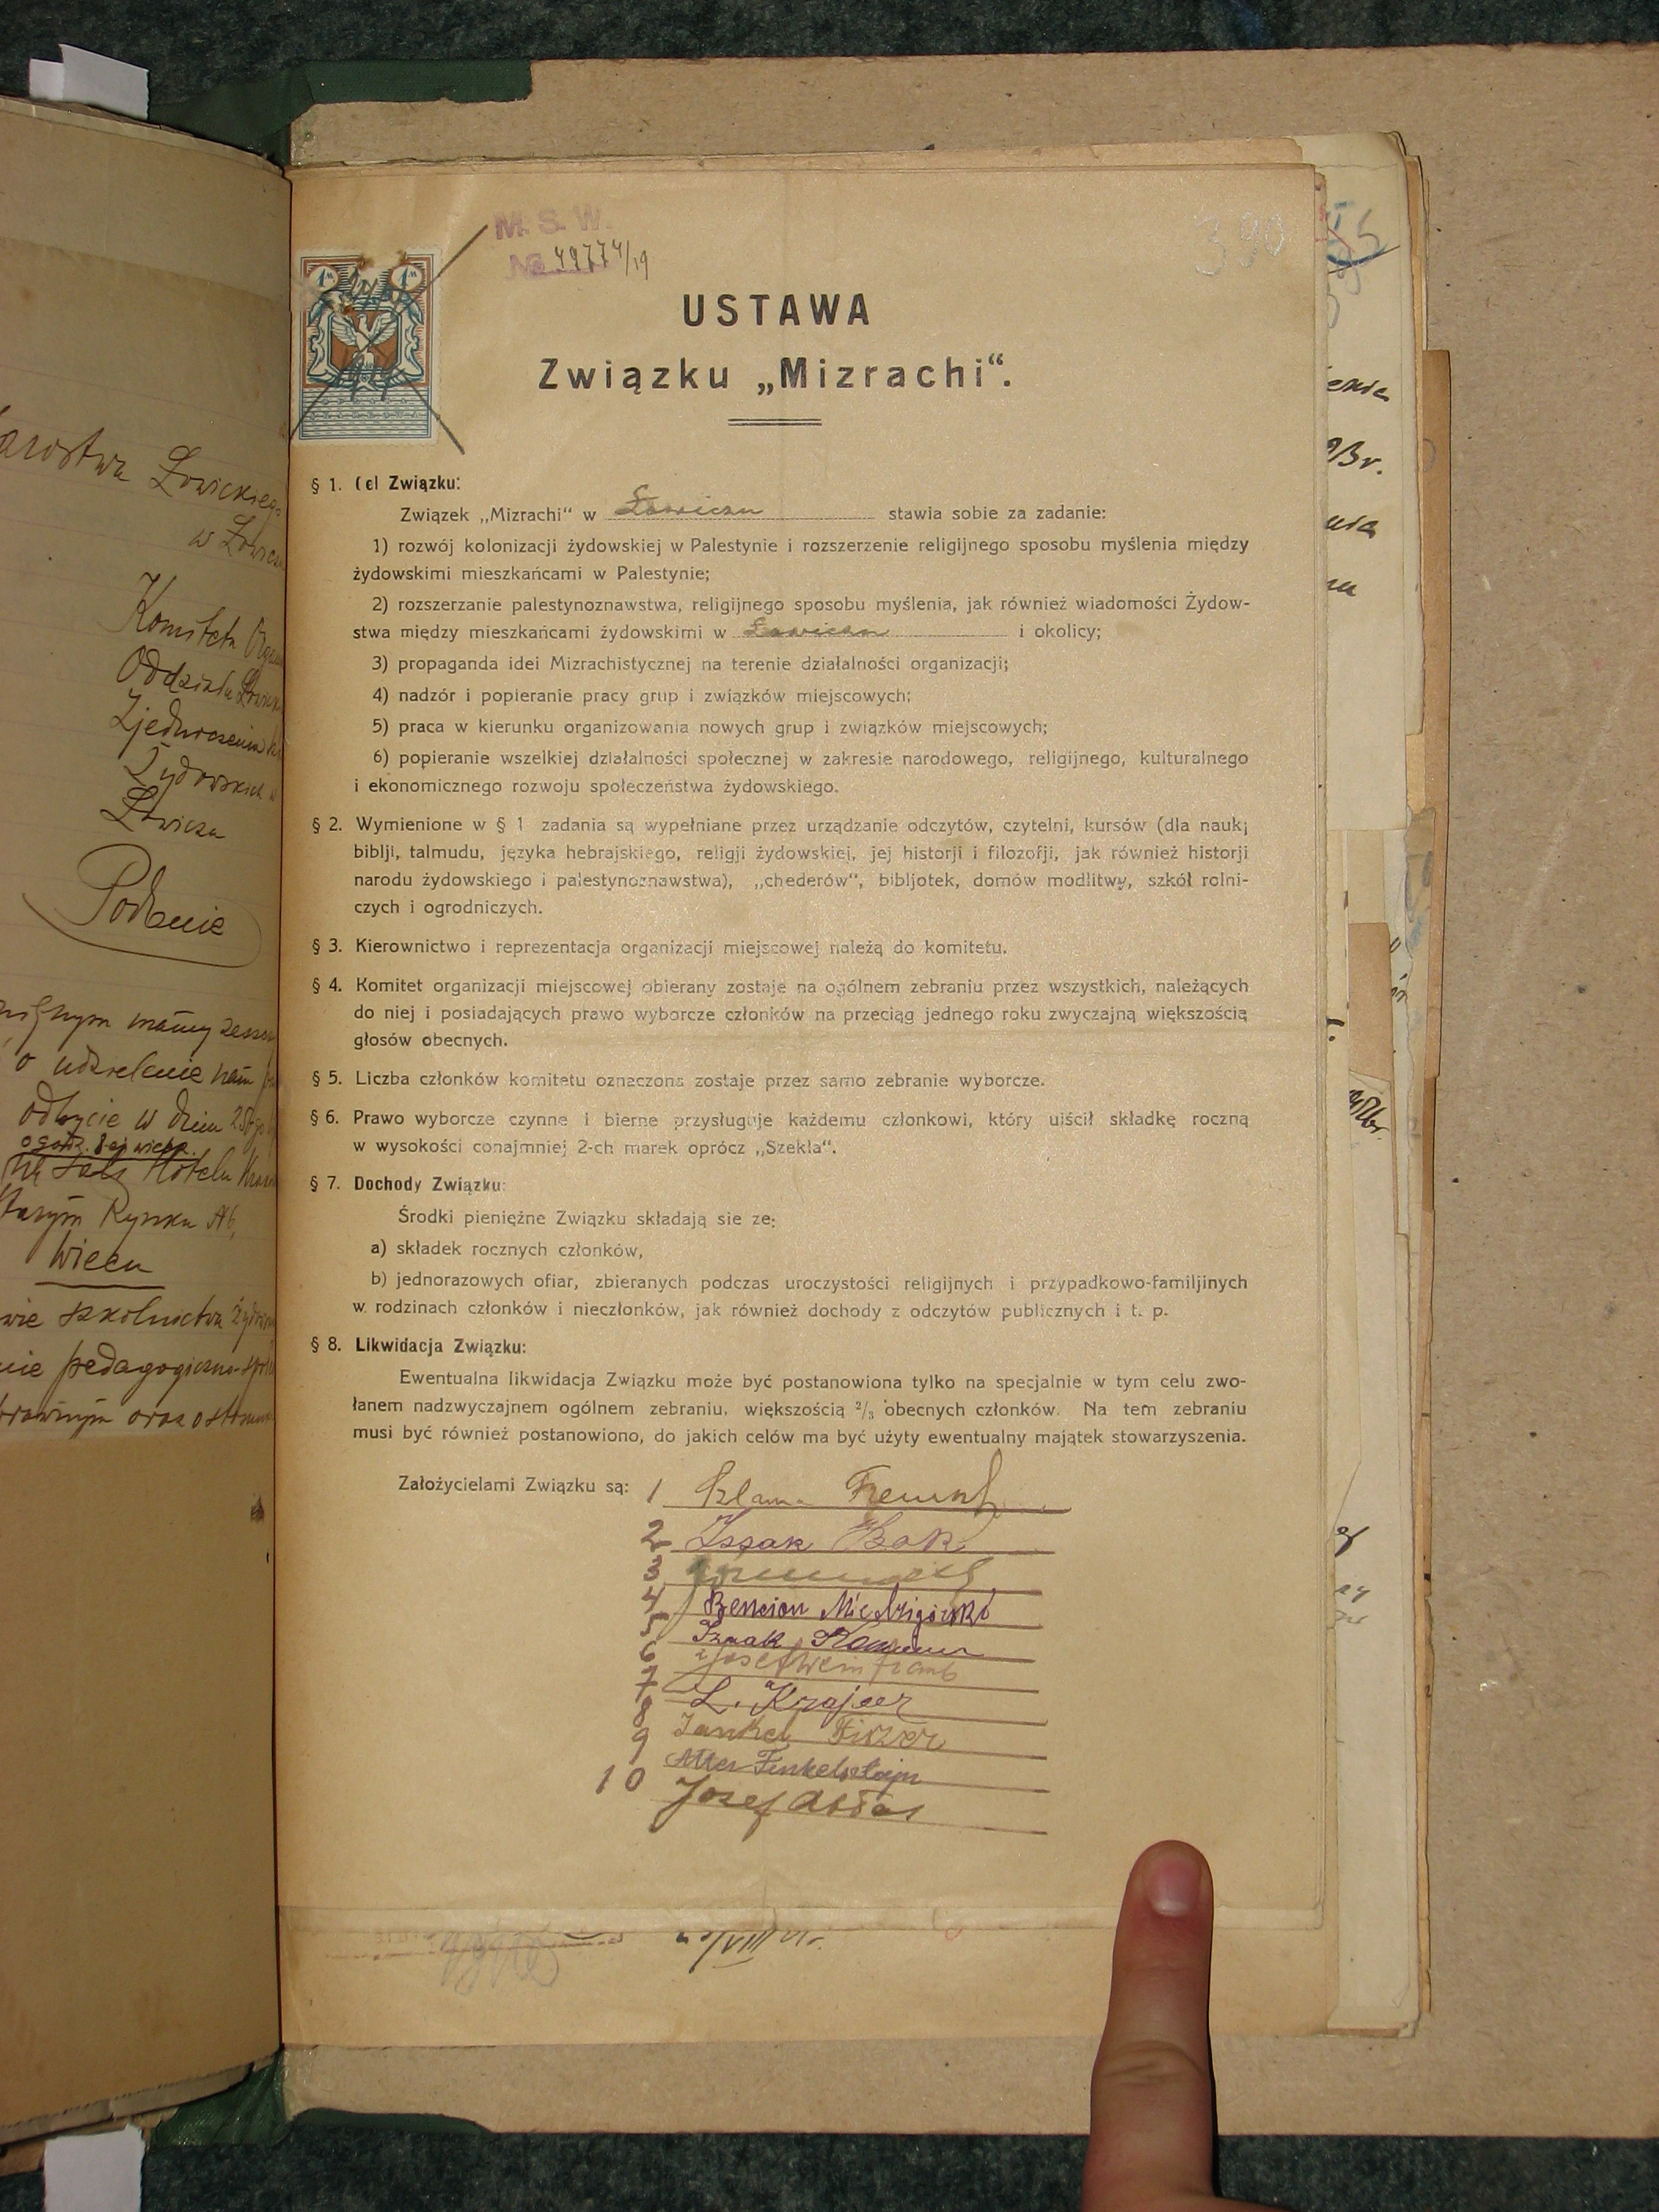 M. S. W.
№ 49774/19
390
USTAWA
Związku „Mizrachi“.
§ 1. Cel Związku:
Związek „Mizrachi“ w Łowiczu stawia sobie za zadanie:
1) rozwój kolonizacji żydowskiej w Palestynie i rozszerzenie religijnego sposobu myślenia między
żydowskimi mieszkańcami w Palestynie;
2) rozszerzanie palestynoznawstwa, religijnego sposobu myślenia, jak również wiadomości Żydow-
stwa między mieszkańcami żydowskimi w Łowiczu i okolicy;
3) propaganda idei Mizrachistycznej na terenie działalności organizacji;
4) nadzór i popieranie pracy grup i związków miejscowych;
5) praca w kierunku organizowania nowych grup i związków miejscowych;
6) popieranie wszelkiej działalności społecznej w zakresie narodowego, religijnego, kulturalnego
i ekonomicznego rozwoju społeczeństwa żydowskiego.
§ 2. Wymienione w § 1 zadania są wypełniane przez urządzanie odczytów, czytelni, kursów (dla nauki
biblji, talmudu, języka hebrajskiego, religji żydowskiej, jej historji i filozofji, jak również historji
narodu żydowskiego i palestynoznawstwa), „chederów“, bibljotek, domów modlitwy, szkół rolni-
czych i ogrodniczych.
§ 3. Kierownictwo i reprezentacja organizacji miejscowej należą do komitetu.
§ 4. Komitet organizacji miejscowej obierany zostaje na ogólnem zebraniu przez wszystkich, należących
do niej i posiadających prawo wyborcze członków na przeciąg jednego roku zwyczajną większością
głosów obecnych.
§ 5. Liczba członków komitetu oznaczona zostaje przez samo zebranie wyborcze.
§ 6. Prawo wyborcze czynne i bierne przysługuje każdemu członkowi, który uiścił składkę roczną
w wysokości conajmniej 2-ch marek oprócz „Szekla“.
§ 7. Dochody Związku:
Środki pieniężne Związku składają sie ze:
a) składek rocznych członków,
b) jednorazowych ofiar, zbieranych podczas uroczystości religijnych i przypadkowo-familjinych
w rodzinach członków i nieczłonków, jak również dochody z odczytów publicznych i t. p.
§ 8. Likwidacja Związku:
Ewentualna likwidacja Związku może być postanowiona tylko na specjalnie w tym celu zwo-
łanem nadzwyczajnem ogólnem zebraniu, większością 2/3 obecnych członków. Na tem zebraniu
musi być również postanowiono, do jakich celów ma być użyty ewentualny majątek stowarzyszenia.
Założycielami Związku są: 1
2 Issak Bok
3
4 Bencion Miedzigórski
5 Izaak
6 Josef Weintraub
7 L. Krajcer
8 Jankel
9 Alter Finkelsztajn
10 Josef
Łowickiego
w
Komitetu
Oddziału
Zjednoczenia
Żydowskich
Łowiczu
Podanie
mamy
o udzielenie nam
odbycie w dniu
o godz. 8-ej wiecz.
Hotelu
Rynku
Wiecu
szkolnictwa
pedagogiczno-
oraz